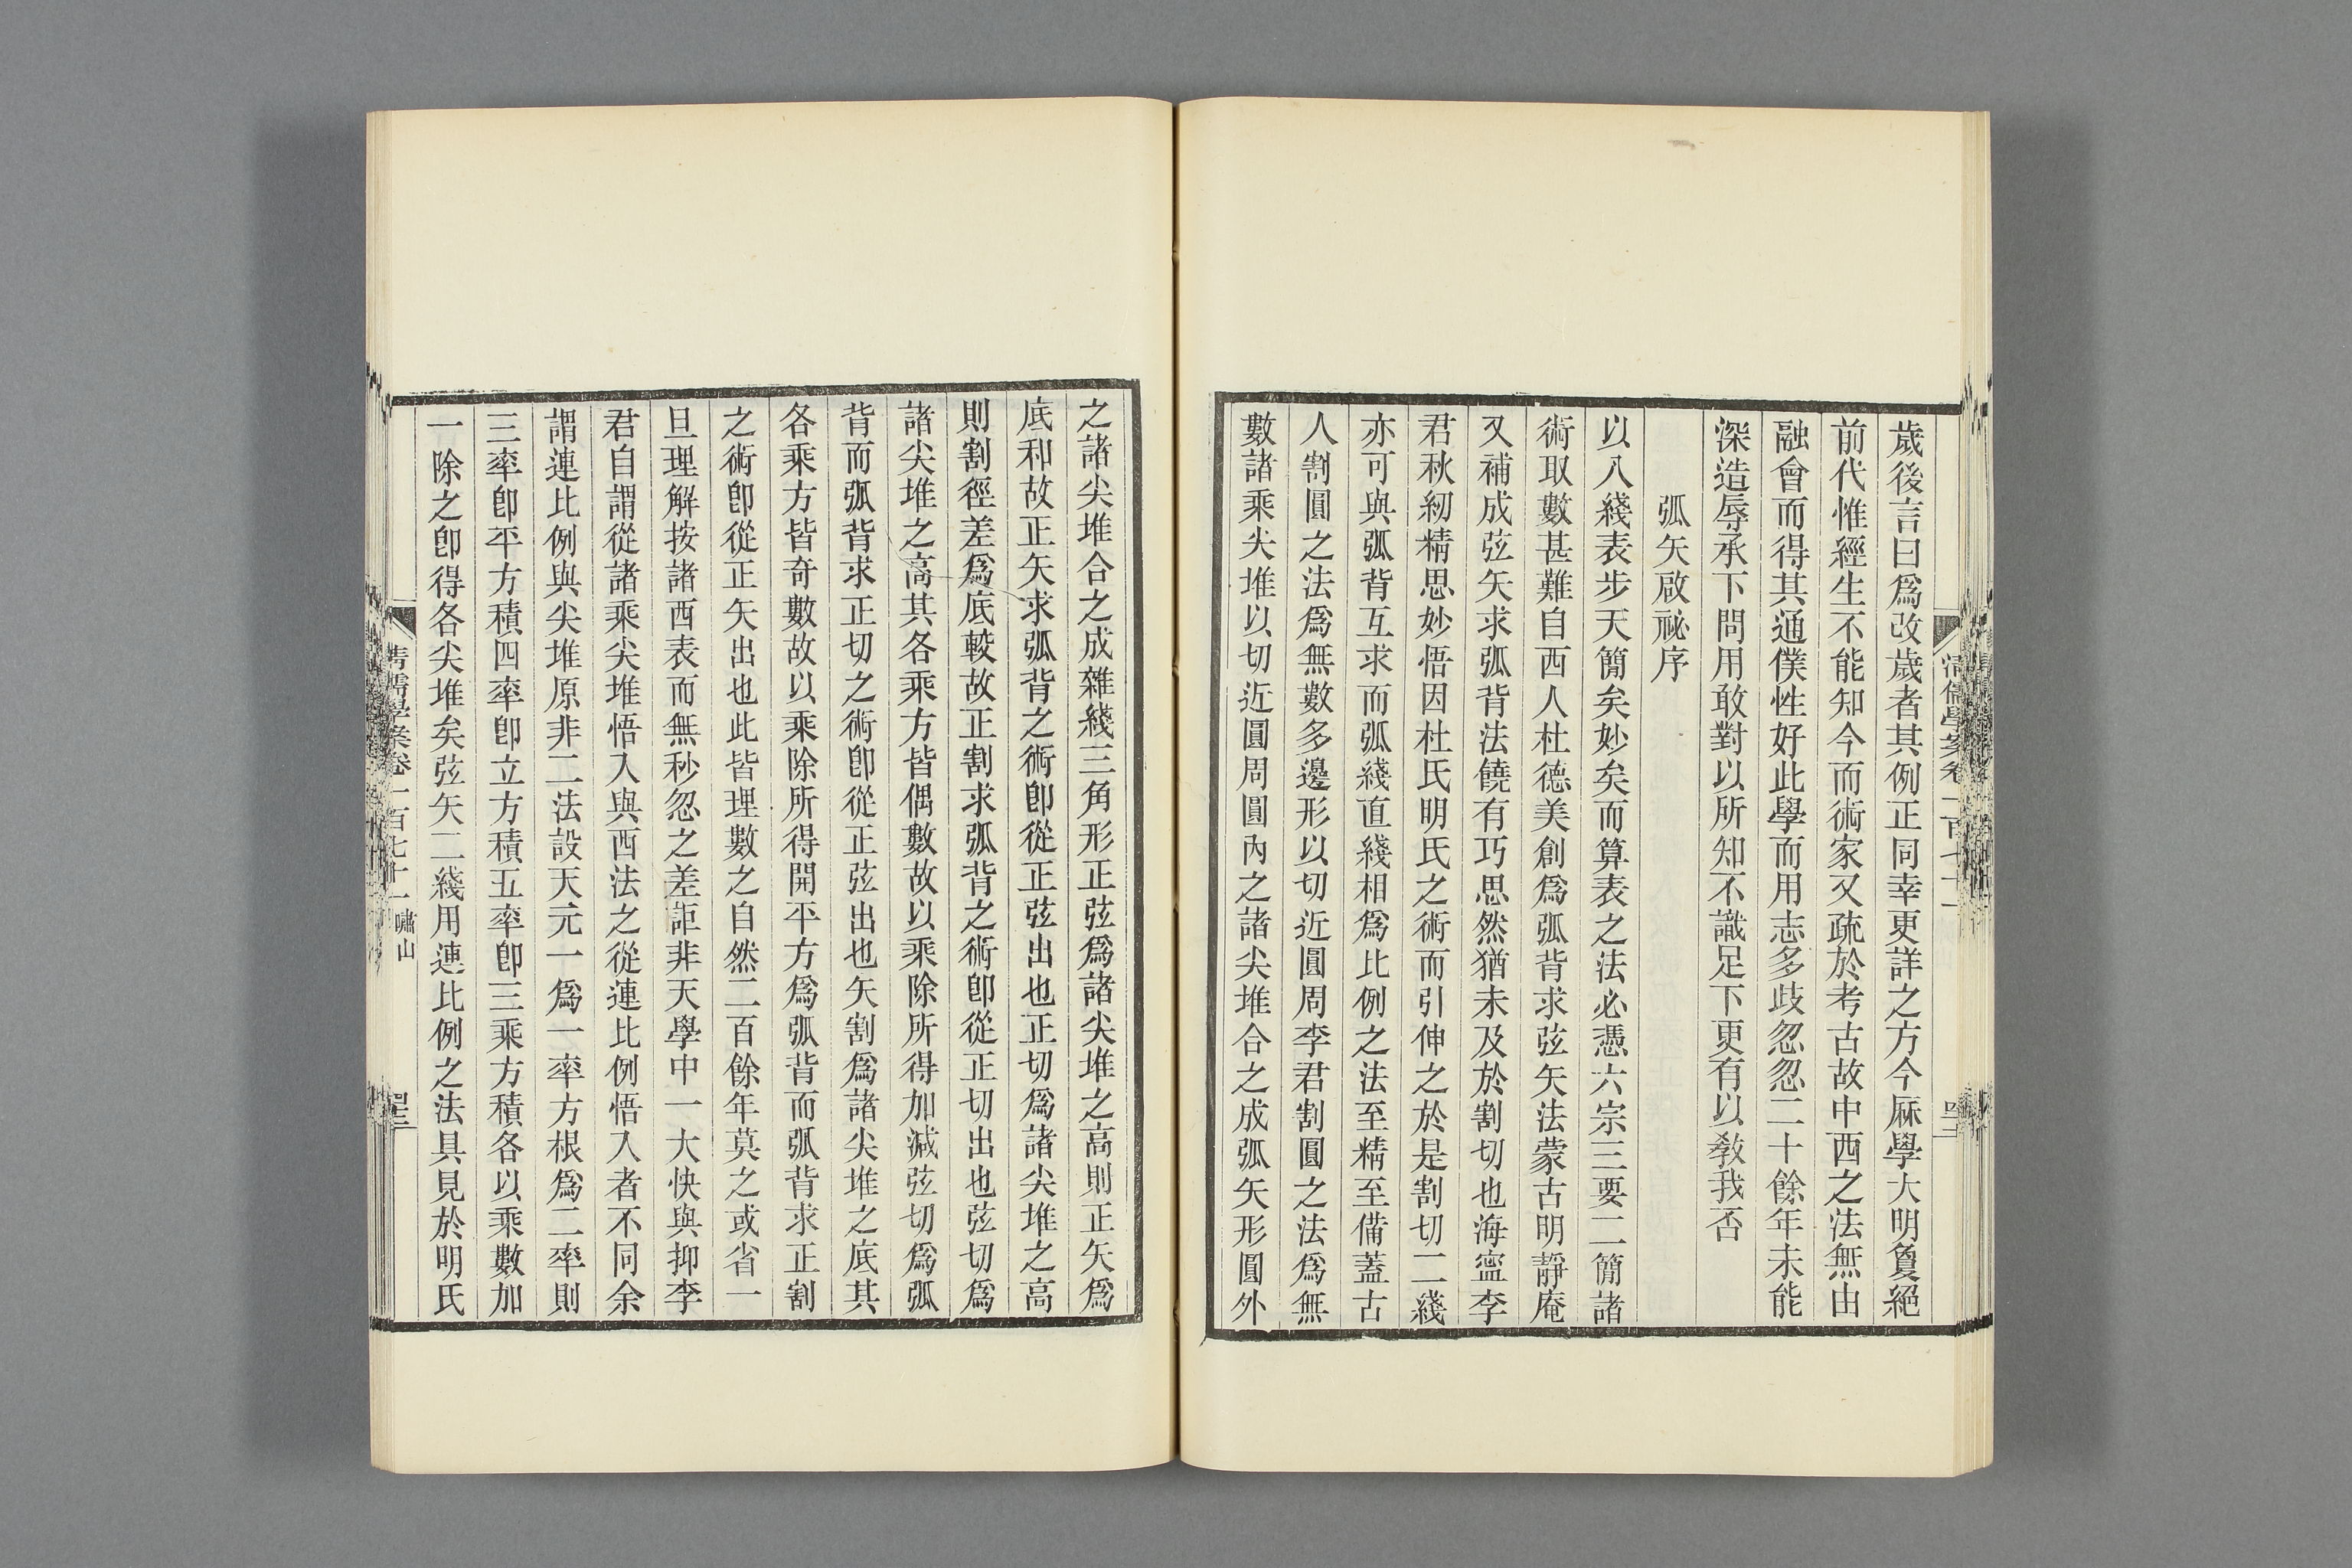 歲後言曰爲改歲者其例正同幸更詳之方今厤學大明敻絕
前代惟經生不能知今而術家又疏於考古故中西之法無由
融會而得其通僕性好此學而用志多歧忽忽二十餘年未能
深造辱承下問用敢對以所知不識足下更有以敎我否
弧矢啟祕序
以八綫表步天簡矣妙矣而算表之法必憑六宗三要二簡諸
術取數甚難自西人杜德美創爲弧背求弦矢法蒙古明靜庵
又補成弦矢求弧背法饒有巧思然猶未及於割切也海寧李
君秋紉精思妙悟因杜氏明氏之術而引伸之於是割切二綫
亦可與弧背互求而弧綫直綫相爲比例之法至精至備蓋古
人割圓之法爲無數多邊形以切近圓周李君割圓之法爲無
數諸乘尖堆以切近圓周圓內之諸尖堆合之成弧矢形圓外
之諸尖堆合之成雜綫三角形正弦爲諸尖堆之高則正矢爲
底和故正矢求弧背之術卽從正弦出也正切爲諸尖堆之高
則割徑差爲底較故正割求弧背之術卽從正切出也弦切爲
諸尖堆之高其各乘方皆偶數故以乘除所得加減弦切爲弧
背而弧背求正切之術卽從正弦出也矢割爲諸尖堆之底其
各乘方皆奇數故以乘除所得開平方爲弧背而弧背求正割
之術卽從正矢出也此皆理數之自然二百餘年莫之或省一
旦理解按諸西表而無秒忽之差詎非天學中一大快與抑李
君自謂從諸乘尖堆悟入與西法之從連比例悟入者不同余
謂連比例與尖堆原非二法設天元一爲一率方根爲二率則
三率卽平方積四率卽立方積五率卽三乘方積各以乘數加
一除之卽得各尖堆矣弦矢二綫用連比例之法具見於明氏
清儒學案卷一百七十一 嘯山